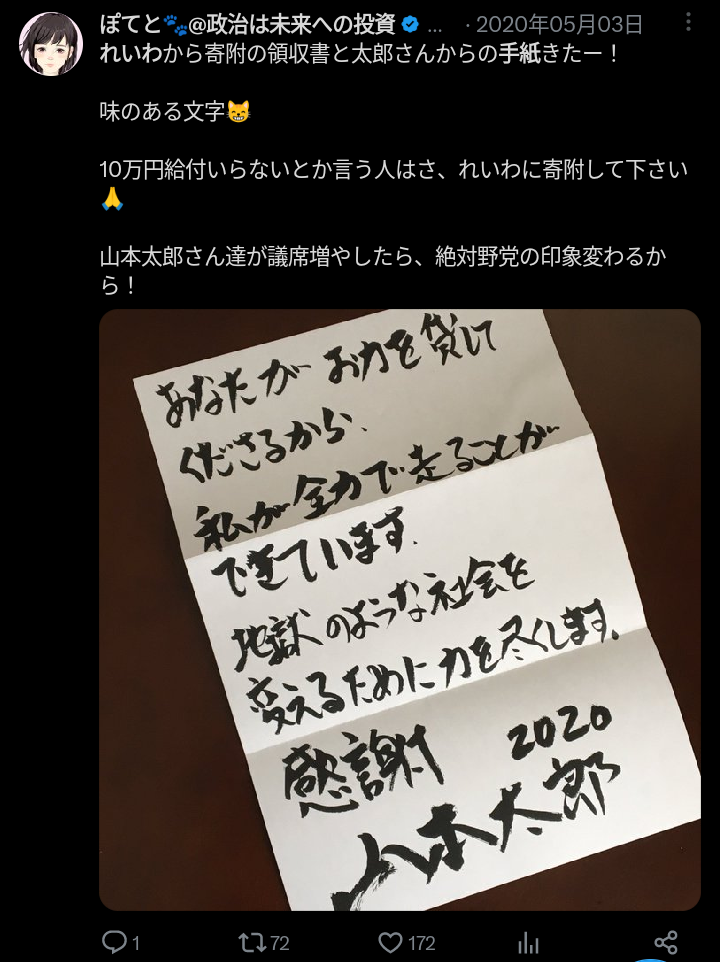 ぽてと🐾@政治は未来への投資 ... ・2020年05月03日
れいわから寄附の領収書と太郎さんからの手紙きたー！
味のある文字😸
10万円給付いらないとか言う人はさ、れいわに寄附して下さい
🙏
山本太郎さん達が議席増やしたら、絶対野党の印象変わるか
ら！
あなたが お力を貸して
くださるから、
私が全力で走ることが
できています。
地獄のような社会を
変えるために力を尽くします。
感謝 2020
山本太郎
1 72 172